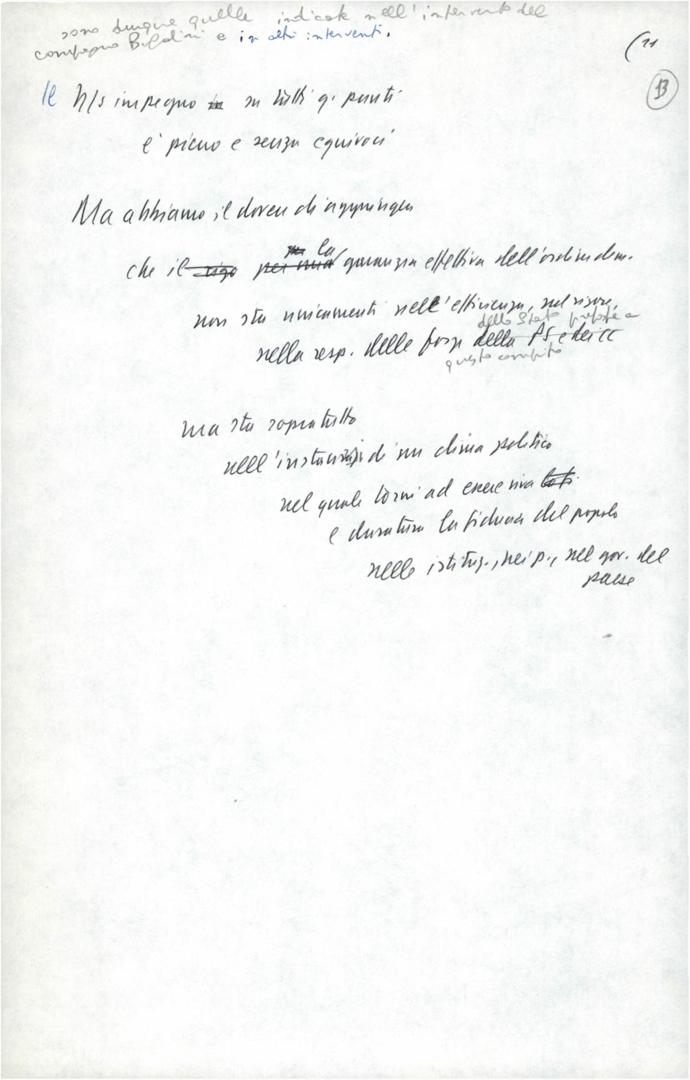 sono dunque quelle indicate nell'intervento del
compagno e in altri interventi.
(11
13
Il n/s impegno in su tutti q. punti
è pieno e senza equivoci
Ma abbiamo il dovere di aggiungere
che il per una la garanzia effettiva dell'ordine dem.
non sta unicamente nell'efficienza, nel rigore,
dello Stato preposte a
nella resp. delle forze della PS e dei CC
questo compito
ma sta sopratutto
nell'instaurazi di un clima politico
nel quale torni ad essere viva
e duratura la fiducia del popolo
nelle istituz., nei p., nel gov. del
paese